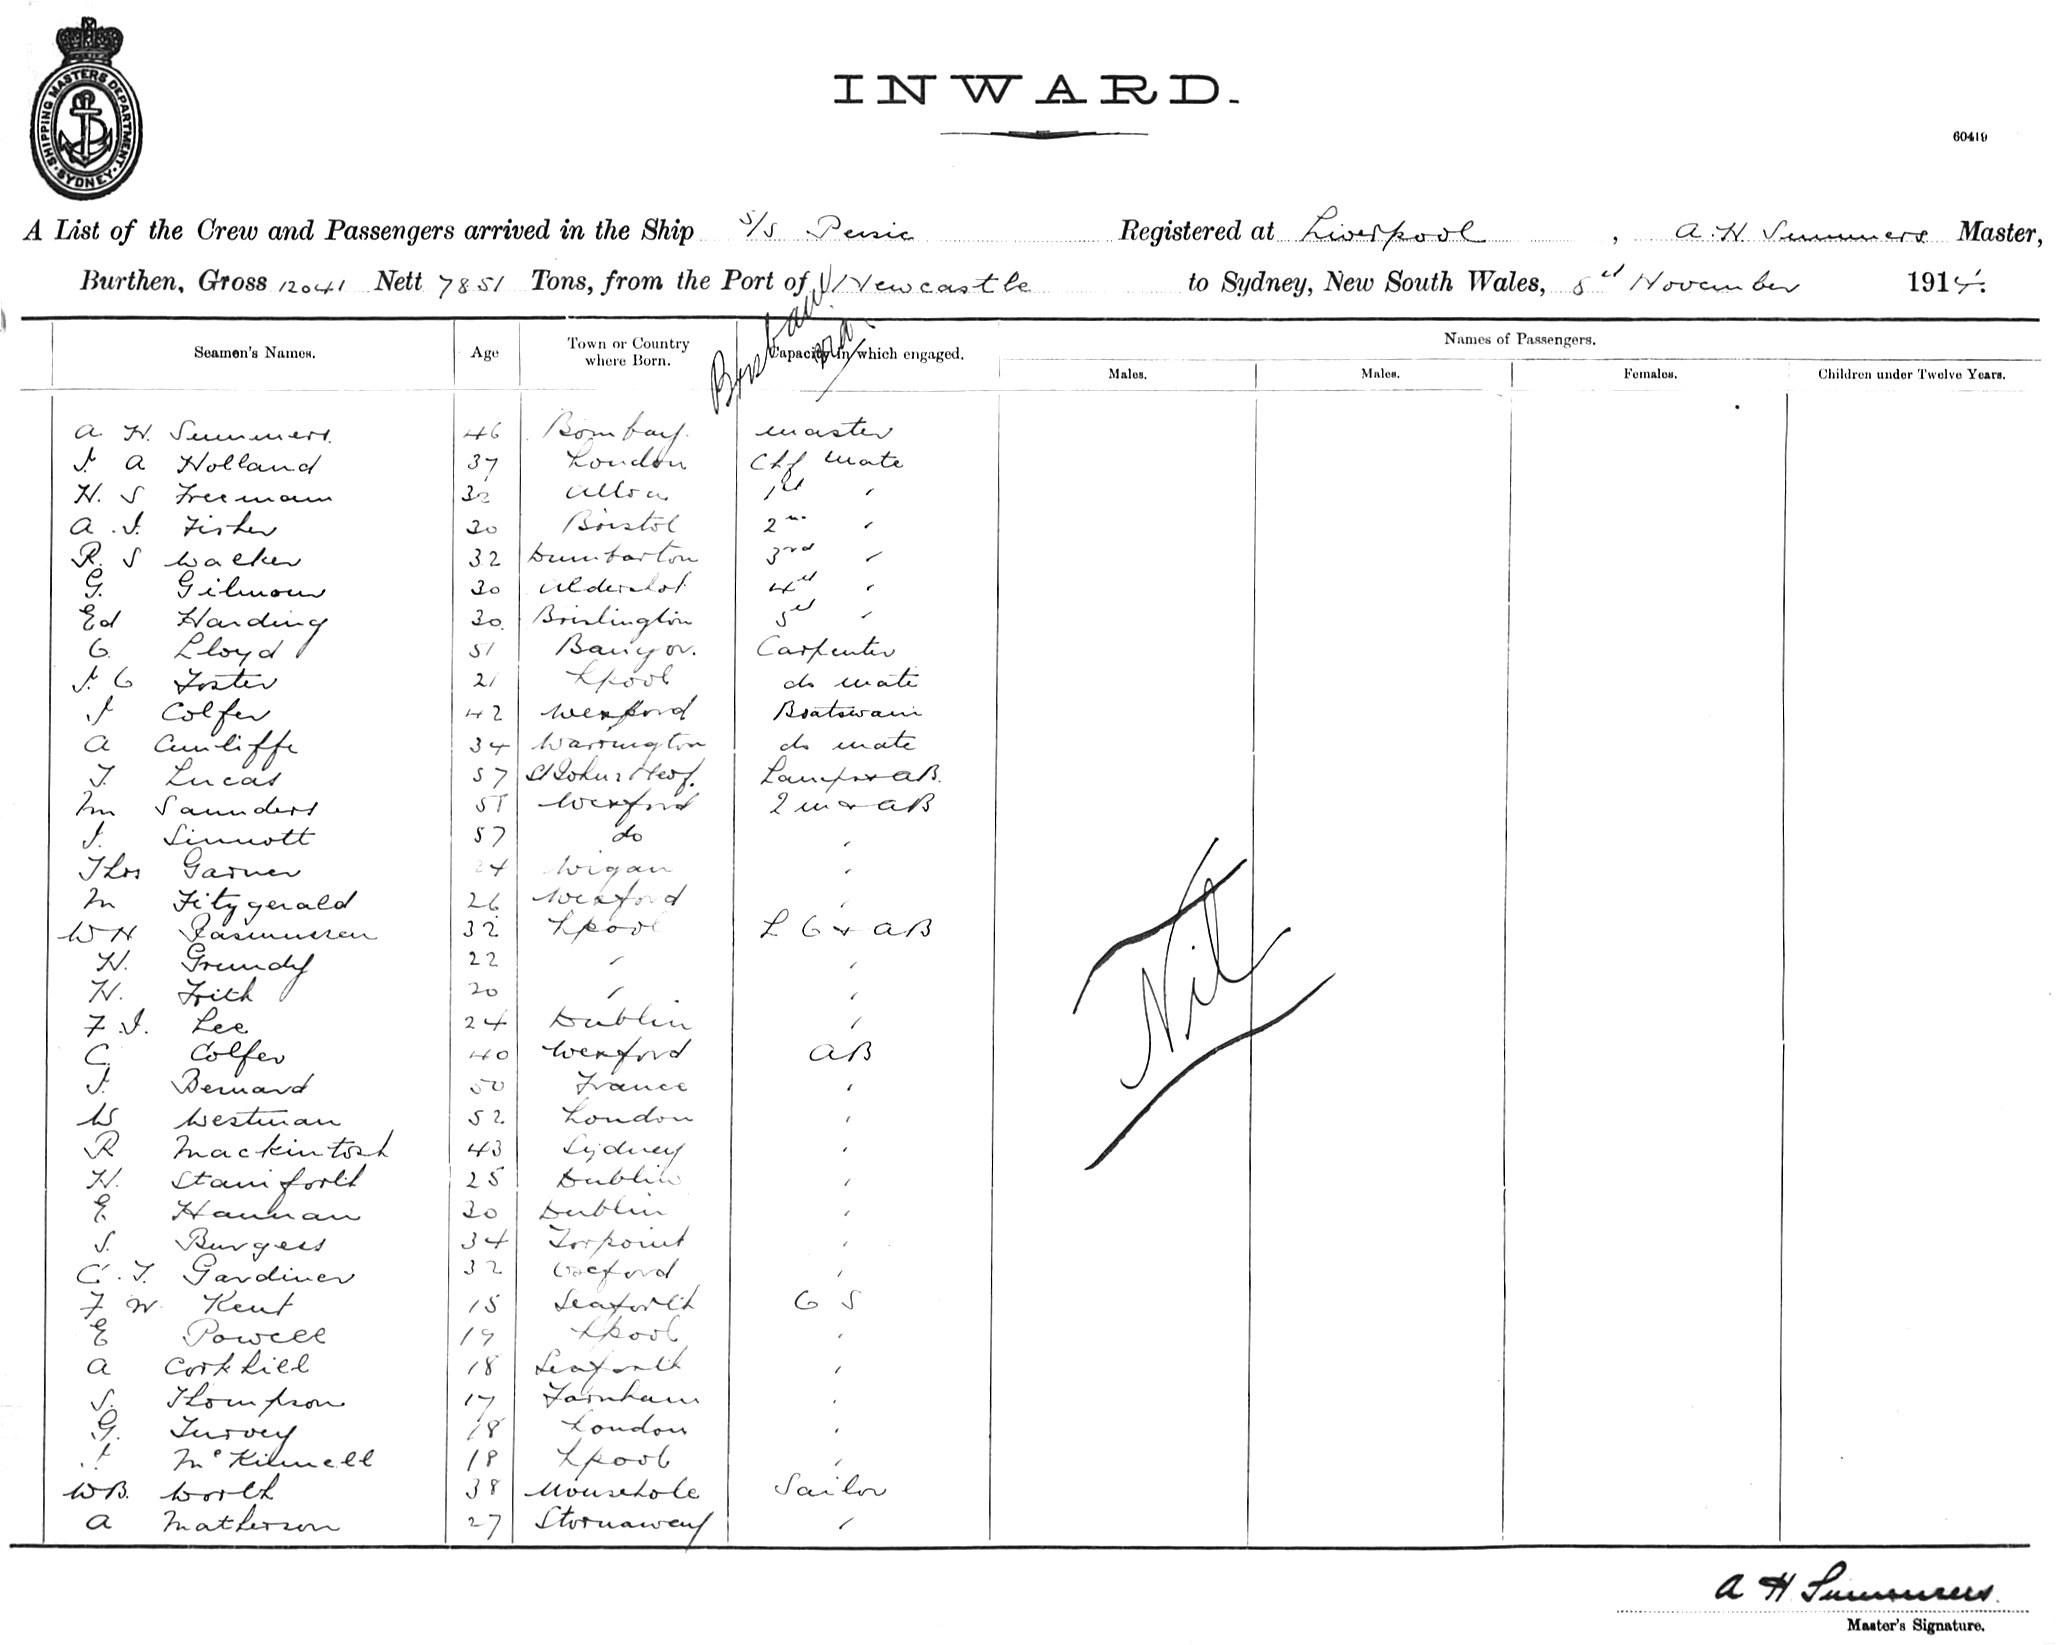 SHIPPING MASTERS DEPARTMENT SYDNEY
INWARD.
60419
A List of the Crew and Passengers arrived in the Ship S/S Persic Registered at Liverpool, A. H. Summers Master,
Burthen, Gross 12041 Nett 7851 Tons, from the Port of Newcastle to Sydney, New South Wales, November 1914.
Brisbane and
Seamen's Names. Age Town or Country where Born. Capacity in which engaged. Names of Passengers.
Males. Males. Females. Children under Twelve Years.
A. H. Summers. 46 Bombay. Master
J A Holland 37 London Chf Mate
H. S Freeman 32 Alloa 1st "
A. J. Fisher 30 Bristol 2nd "
R. S Walker 32 Dumbarton 3rd "
G. Gilmour 30 Aldershot 4th "
Ed Harding 30. Brislington 5th "
C. Lloyd 51 Bangor. Carpenter
J. C Foster 21 Lpool do mate
J Colfer 42 Wexford Boatswain
A Cunliffe 34 Warrington do mate
T. Lucas 57 St Johns Lamps + AB.
Wm Saunders 51 Wexford 2 m + AB
J. Sinnott 57 do "
Thos Garner 24 Wigan "
M Fitzgerald 26 Wexford "
W H Rasmussen 32 Lpool L G + AB
H. Grundy 22 " "
H. Frith 20 " "
F. J. Lee 24 Dublin "
C. Colfer 40 Wexford AB
J. Bernard 50 France "
W Westman 52 London "
R Mackintosh 43 Sydney "
H. Staniforth 25 Dublin "
E. Hannan 30 Dublin "
S. Burgess 34 Torpoint "
C. T. Gardiner 32 Oxford "
F W. Kent 18 Seaforth O S
E Powell 19 Lpool "
A Corkhill 18 Seaforth "
S. Thompson 17 Farnham "
G. Turvey 18 London "
J McKinnell 18 Lpool "
W B. Worth 38 Mousehole Sailor
A Matherson 27 Stornaway "
Nil
A H Summers.
Master's Signature.